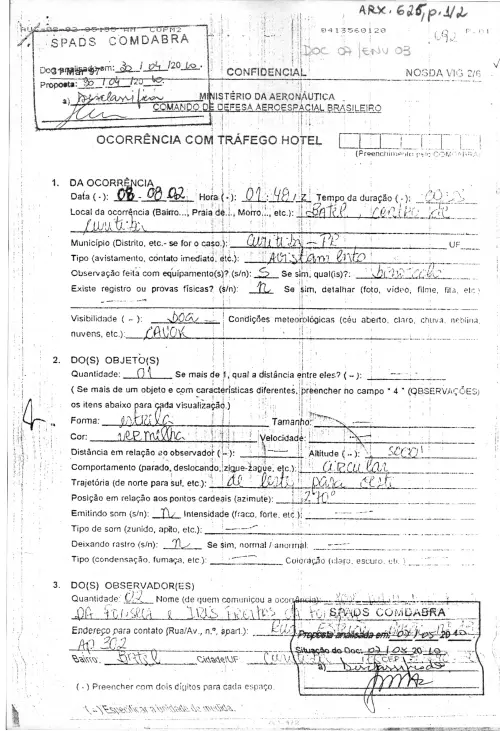 ARX. 625, p. 1/2
0413560120 P.01
SPADS COMDABRA
DOC 07/ENV 03
Doc analisado em: 30 / 04 /20 10.
Proposta: 30 / 04 /20 10
a)
CONFIDENCIAL
NOSDA VIG 2/6
MINISTÉRIO DA AERONÁUTICA
COMANDO DE DEFESA AEROESPACIAL BRASILEIRO
OCORRÊNCIA COM TRÁFEGO HOTEL
(Preenchimento pelo COMDABRA)
1. DA OCORRÊNCIA
Data (-): 08.08.02 Hora (-): 01:48/Z Tempo da duração (-):
Local da ocorrência (Bairro..., Praia de..., Morro..., etc.): BATEL, centro de
Curitiba
Município (Distrito, etc.- se for o caso): Curitiba - PR UF
Tipo (avistamento, contato imediato, etc.): Avistamento
Observação feita com equipamento(s)? (s/n): S Se sim, qual(is)?: binóculo
Existe registro ou provas físicas? (s/n): N Se sim, detalhar (foto, vídeo, filme, fita, etc)
Visibilidade ( - ): boa Condições meteorológicas (céu aberto, claro, chuva, neblina,
nuvens, etc.): CAVOK
2. DO(S) OBJETO(S)
Quantidade: 01 Se mais de 1, qual a distância entre eles? ( - ):
( Se mais de um objeto e com características diferentes, preencher no campo " 4 " (OBSERVAÇÕES)
os itens abaixo para cada visualização.)
Forma: estrela Tamanho:
Cor: vermelha Velocidade:
Distância em relação ao observador ( - ): Altitude ( - ): 5000'
Comportamento (parado, deslocando, zigue-zague, etc.): circular
Trajetória (de norte para sul, etc.): de leste para oeste
Posição em relação aos pontos cardeais (azimute): 270°
Emitindo som (s/n): N Intensidade (fraco, forte, etc.):
Tipo de som (zunido, apito, etc.):
Deixando rastro (s/n): N Se sim, normal / anormal:
Tipo (condensação, fumaça, etc.): Coloração (claro, escuro, etc.)
3. DO(S) OBSERVADOR(ES)
Quantidade: 02 Nome (de quem comunicou a ocorrência):
DA FONSECA e IRIS
SPADS COMDABRA
Endereço para contato (Rua/Av., n.º, apart.): Rua
Proposta analisada em: 07 / 05 / 20 10
AP 302
Situação do Doc: 07 / 05 20 10
Bairro: Batel Cidade/UF CEP
a) Desclassificado
( - ) Preencher com dois dígitos para cada espaço.
( - ) Especificar a unidade de medida.